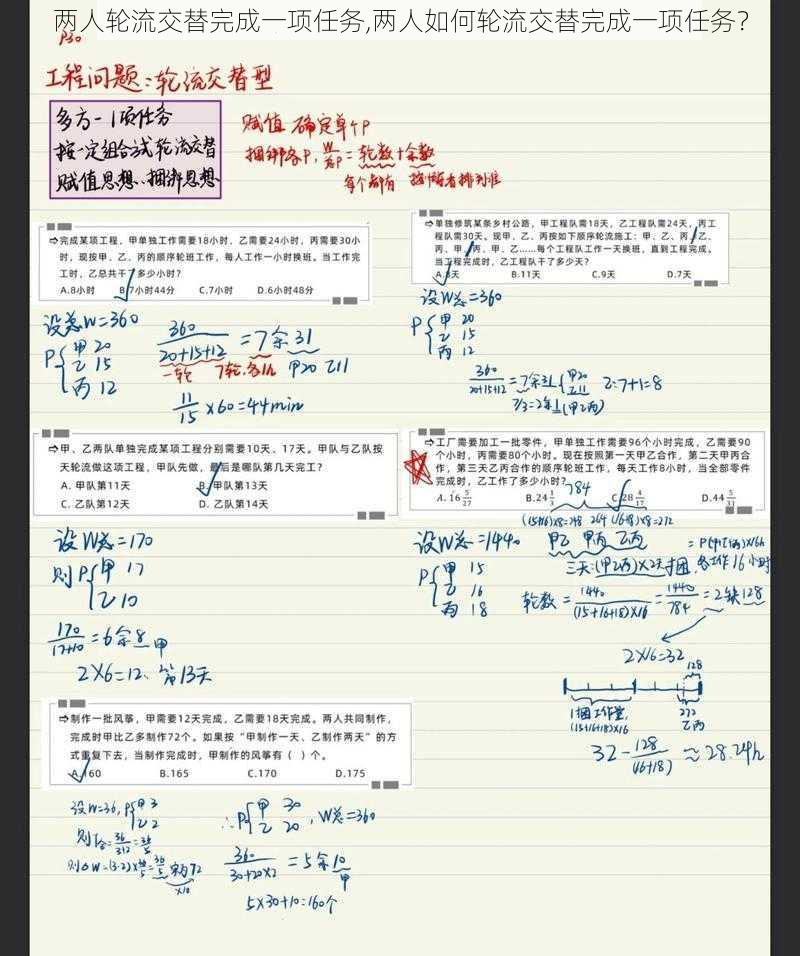 两人轮流交替完成一项任务,两人如何轮流交替完成一项任务?
P30
工程问题:轮流交替型
多方-1项任务
按一定组合式轮流交替
赋值思想、捆绑思想
赋值 确定单个P
捆绑求P, W/总P = 轮数+余数
每个都有 按顺序排列准
⇨完成某项工程,甲单独工作需要18小时,乙需要24小时,丙需要30小
时,现按甲、乙、丙的顺序轮班工作,每人工作一小时换班。当工作完
工时,乙总共干了多少小时?
A.8小时 B.7小时44分 C.7小时 D.6小时48分
设总W=360
P{甲 20
乙 15
丙 12
360/(20+15+12) =7余31
一轮 7轮,各1h 甲20 乙11
11/15 ×60=44min
⇨单独修筑某条乡村公路,甲工程队需18天,乙工程队需24天,丙工
程队需30天。现甲、乙、丙按如下顺序轮流施工:甲、乙、丙、乙、
丙、甲、丙、甲、乙……每个工程队工作一天换班,直到工程完成。
当工程完成时,乙工程队干了多少天?
A.8天 B.11天 C.9天 D.7天
设W总=360
P{甲 20
乙 15
丙 12
360/(20+15+12) =7余31{甲20
乙11
乙:7+1=8
7/3=2余1(甲乙丙)
⇨甲、乙两队单独完成某项工程分别需要10天、17天。甲队与乙队按
天轮流做这项工程,甲队先做,最后是哪队第几天完工?
A. 甲队第11天 B. 甲队第13天
C. 乙队第12天 D. 乙队第14天
设W总=170
则P{甲 17
乙 10
170/(17+10) =6余8 甲
2×6=12、第13天
⇨工厂需要加工一批零件,甲单独工作需要96个小时完成,乙需要90
个小时,丙需要80个小时。现在按照第一天甲乙合作,第二天甲丙合
作,第三天乙丙合作的顺序轮班工作,每天工作8小时,当全部零件
完成时,乙工作了多少小时?
A. 16 5/27 B.24 1/3 C.28 4/17 D.44 5/31
784
(15+16)×8=248 264 (16+18)×8=272
设W总=1440
甲乙 甲丙 乙丙
P{甲 15
乙 16
丙 18
=P(甲乙丙)×16h
三天:(甲乙丙)×2天 捆,各工作16小时
轮数=1440/((15+16+18)×16)=1440/784=2缺128
2×16=32
128
1捆工作量,
(15+16+18)×16
272
乙丙
32-128/(16+18)≈28.24h
⇨制作一批风筝,甲需要12天完成,乙需要18天完成。两人共同制作,
完成时甲比乙多制作72个。如果按“甲制作一天、乙制作两天”的方
式重复下去,当制作完成时,甲制作的风筝有( )个。
A.160 B.165 C.170 D.175
设W=36,P{甲 3
乙 2
则T合=36/(3+2)=36/5
则ΔW=(3-2)×36/5=36/5 实为72
×10
∴P{甲 30
乙 20 ,W总=360
360/(30+20×2) =5余10
甲
5×30+10=160个